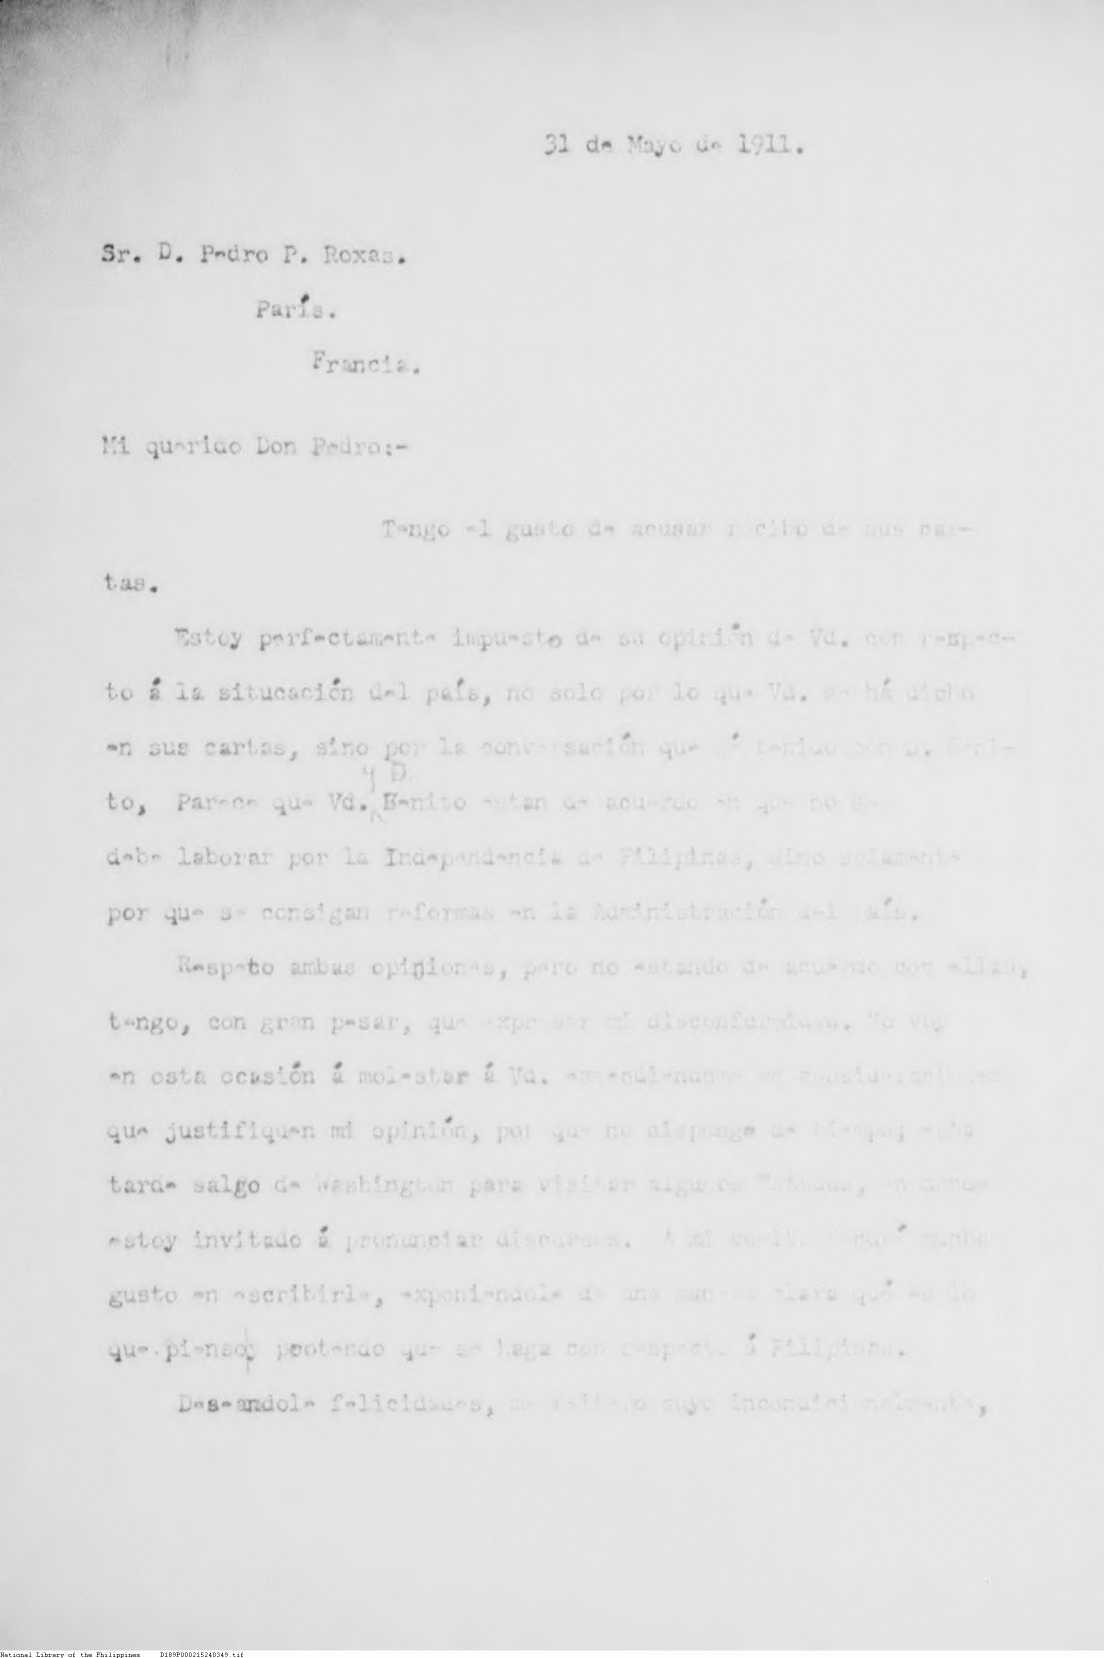 31 de Mayo de 1911.
Sr. D. Pedro P. Roxas.
París.
Francia.
Mi querido Don Pedro:-
Tengo el gusto de acusar recibo de sus car-
tas.
Estoy perfectamente impuesto de su opinión de Vd. con respec-
to á la situcación del país, no solo por lo que Vd. me há dicho
en sus cartas, sino por la conversación que hé tenido con D. Beni-
y D.
to, Parece que Vd. Benito estan de acuerdo en que no se
debe laborar por la Independencia de Filipinas, sino solamente
por que se consigan reformas en la Administración del país.
Respeto ambas opiniones, pero no estando de acuerdo con ellas,
tengo, con gran pesar, que expresar mi disconformidad. No voy
en esta ocasión á molestar á Vd. en consideraciones
que justifiquen mi opinión, por que no dispongo de tiempo; esta
tarde salgo de Washington para visitar algunos Estados, en donde
estoy invitado á pronunciar discursos. A mi vuelta tendré mucho
gusto en escribirle, exponiendole de una manera clara qué es lo
que pienso, pretendo que se haga con respecto á Filipinas.
Deseandole felicidades, me reitero suyo incondicionalmente,
National Library of the Philippines D189P000215240349.tif